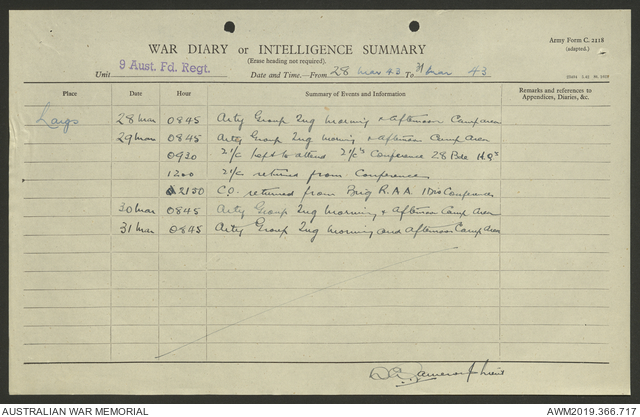 Army Form C. 2118
(adapted.)
WAR DIARY or INTELLIGENCE SUMMARY
(Erase heading not required).
Unit 9 Aust. Fd. Regt.
Date and Time.—From 28 Mar 43 To 31 Mar 43
Place Date Hour Summary of Events and Information Remarks and references to Appendices, Diaries, &c.
Largs 28 Mar 0845 Arty Group Trg Morning & afternoon Camp area
29 Mar 0845 Arty Group Trg Morning & afternoon Camp Area
0930 2 I/c left to attend 2 I/c's Conference 28 Bde HQrs
1200 2 I/c returned from Conference
2130 C.O. returned from Brig R.A.A. 1 Div Conference
30 Mar 0845 Arty Group Trg Morning & Afternoon Camp Area
31 Mar 0845 Arty Group Trg Morning and Afternoon Camp Area
Lieut
AUSTRALIAN WAR MEMORIAL
AWM2019.366.717